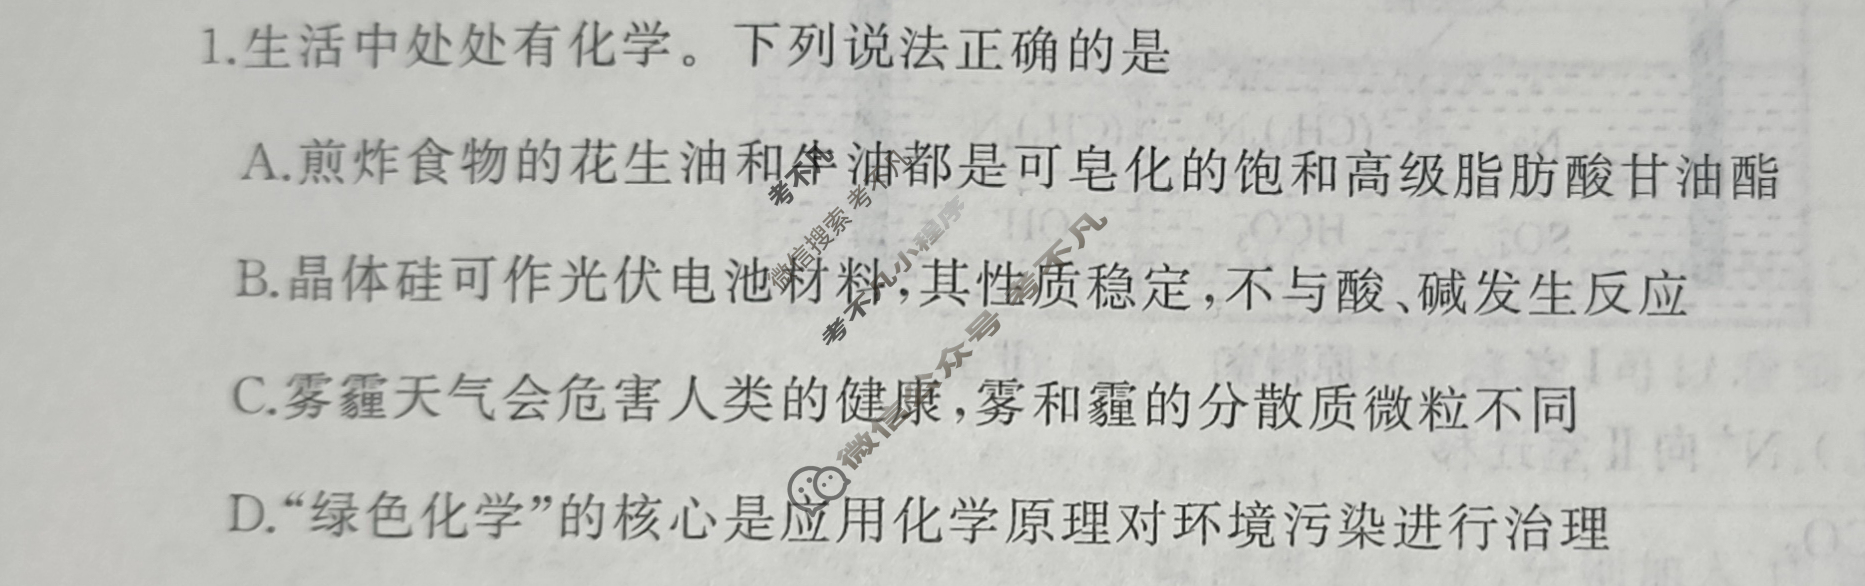 1.生活中处处有化学。下列说法正确的是
A.煎炸食物的花生油和牛油都是可皂化的饱和高级脂肪酸甘油酯
B.晶体硅可作光伏电池材料,其性质稳定,不与酸、碱发生反应
C.雾霾天气会危害人类的健康,雾和霾的分散质微粒不同
D.“绿色化学”的核心是应用化学原理对环境污染进行治理
考不凡
微信搜索 考不凡
考不凡小程序
微信公众号 考不凡